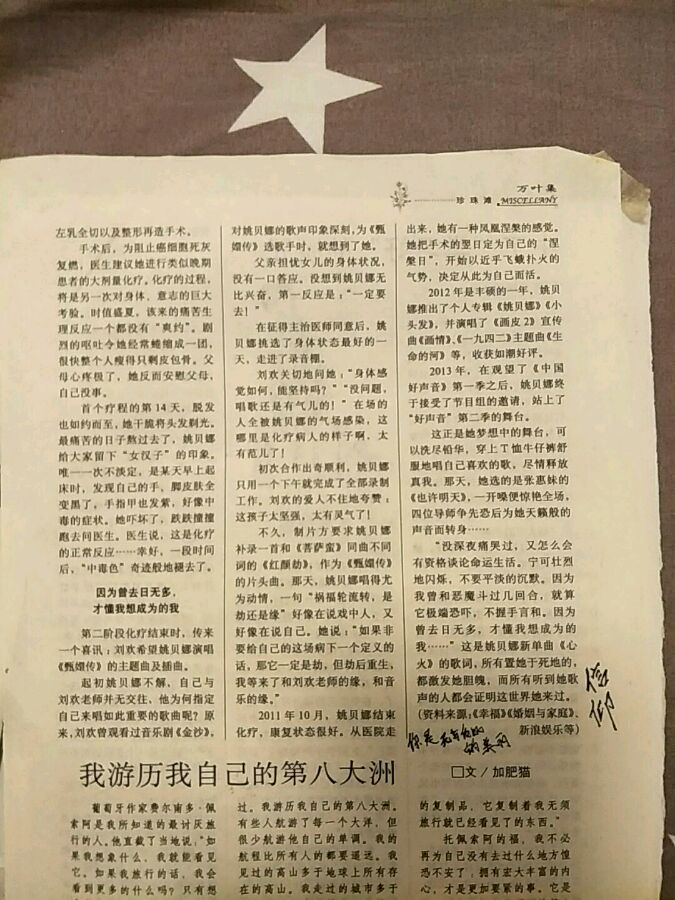 万叶集
珍珠滩 MISCELLANY
左乳全切以及整形再造手术。
手术后，为阻止癌细胞死灰
复燃，医生建议她进行类似晚期
患者的大剂量化疗。化疗的过程，
将是另一次对身体、意志的巨大
考验。时值盛夏，该来的痛苦生
理反应一个都没有“爽约”。剧
烈的呕吐令她经常蜷缩成一团，
很快整个人瘦得只剩皮包骨。父
母心疼极了，她反而安慰父母，
自己没事。
首个疗程的第14天，脱发
也如约而至，她干脆将头发剃光。
最痛苦的日子熬过去了，姚贝娜
给大家留下“女汉子”的印象。
唯一一次不淡定，是某天早上起
床时，发现自己的手，脚皮肤全
变黑了，手指甲也发紫，好像中
毒的症状。她吓坏了，跌跌撞撞
跑去问医生。医生说，这是化疗
的正常反应……幸好，一段时间
后，“中毒色”奇迹般地褪去了。
因为曾去日无多，
才懂我想成为的我
第二阶段化疗结束时，传来
一个喜讯：刘欢希望姚贝娜演唱
《甄嬛传》的主题曲及插曲。
起初姚贝娜不解，自己与
刘欢老师并无交往，他为何指定
自己来唱如此重要的歌曲呢？原
来，刘欢曾观看过音乐剧《金沙》，
对姚贝娜的歌声印象深刻，为《甄
嬛传》选歌手时，就想到了她。
父亲担忧女儿的身体状况，
没有一口答应。没想到姚贝娜无
比兴奋，第一反应是：“一定要
去！”
在征得主治医师同意后，姚
贝娜挑选了身体状态最好的一
天，走进了录音棚。
刘欢关切地问她：“身体感
觉如何，能坚持吗？”“没问题，
唱歌还是有气儿的！”在场的
人全被姚贝娜的气场感染，这
哪里是化疗病人的样子啊，太
有范儿了！
初次合作出奇顺利，姚贝娜
只用一个下午就完成了全部录制
工作。刘欢的爱人不住地夸赞：
这孩子太坚强，太有灵气了！
不久，制片方要求姚贝娜
补录一首和《菩萨蛮》同曲不同
词的《红颜劫》，作为《甄嬛传》
的片头曲。那天，姚贝娜唱得尤
为动情，一句“祸福轮流转，是
劫还是缘”好像在说戏中人，又
好像在说自己。她说：“如果非
要给自己的这场病下一个定义的
话，那它一定是劫，但劫后重生，
我等来了和刘欢老师的缘，和音
乐的缘。”
2011年10月，姚贝娜结束
化疗，康复状态很好。从医院走
出来，她有一种凤凰涅槃的感觉。
她把手术的翌日定为自己的“涅
槃日”，开始以近乎飞蛾扑火的
气势，决定从此为自己而活。
2012年是丰硕的一年，姚贝
娜推出了个人专辑《姚贝娜》《小
头发》，并演唱了《画皮2》宣传
曲《画情》、《一九四二》主题曲《生
命的河》等，收获如潮好评。
2013年，在观望了《中国
好声音》第一季之后，姚贝娜终
于接受了节目组的邀请，站上了
“好声音”第二季的舞台。
这正是她梦想中的舞台，可
以洗尽铅华，穿上T恤牛仔裤舒
服地唱自己喜欢的歌，尽情释放
真我。那天，她选的是张惠妹的
《也许明天》，一开嗓便惊艳全场，
四位导师争先恐后为她天籁般的
声音而转身……
“没深夜痛哭过，又怎么会
有资格谈论命运生活。宁可壮烈
地闪烁，不要平淡的沉默。因为
我曾和恶魔斗过几回合，就算
它极端恐吓，不握手言和。因为
曾去日无多，才懂我想成为的
我……”这是姚贝娜新单曲《心
火》的歌词，所有置她于死地的，
都激发她胆魄，而所有听到她歌
声的人都会证明这世界她来过。
（资料来源：《幸福》《婚姻与家庭》、
新浪娱乐等）
我游历我自己的第八大洲
□文／加肥猫
葡萄牙作家费尔南多·佩
索阿是我所知道的最讨厌旅
行的人。他直截了当地说：“如
果我想象什么，我就能看见
它。如果我旅行的话，我会
看到更多的什么吗？只有想
过。我游历我自己的第八大洲。
有些人航游了每一个大洋，但
很少航游他自己的单调。我的
航程比所有人的都要遥远。我
见过的高山多于地球上所有存
在的高山。我走过的城市多于
的复制品，它复制着我无须
旅行就已经看见了的东西。”
托佩索阿的福，我不必
再为自己没有去过什么地方惶
恐不安了；拥有宏大丰富的内
心，才是更加要紧的事。它是